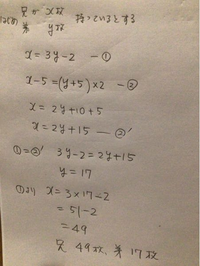 兄が x枚
弟 y枚 持っているとする
x = 3y - 2 ー①
x - 5 = (y + 5) × 2 ー②
x = 2y + 10 + 5
x = 2y + 15 ー②'
①=②' 3y - 2 = 2y + 15
y = 17
①より x = 3 × 17 - 2
= 51 - 2
= 49
兄 49枚、弟 17枚